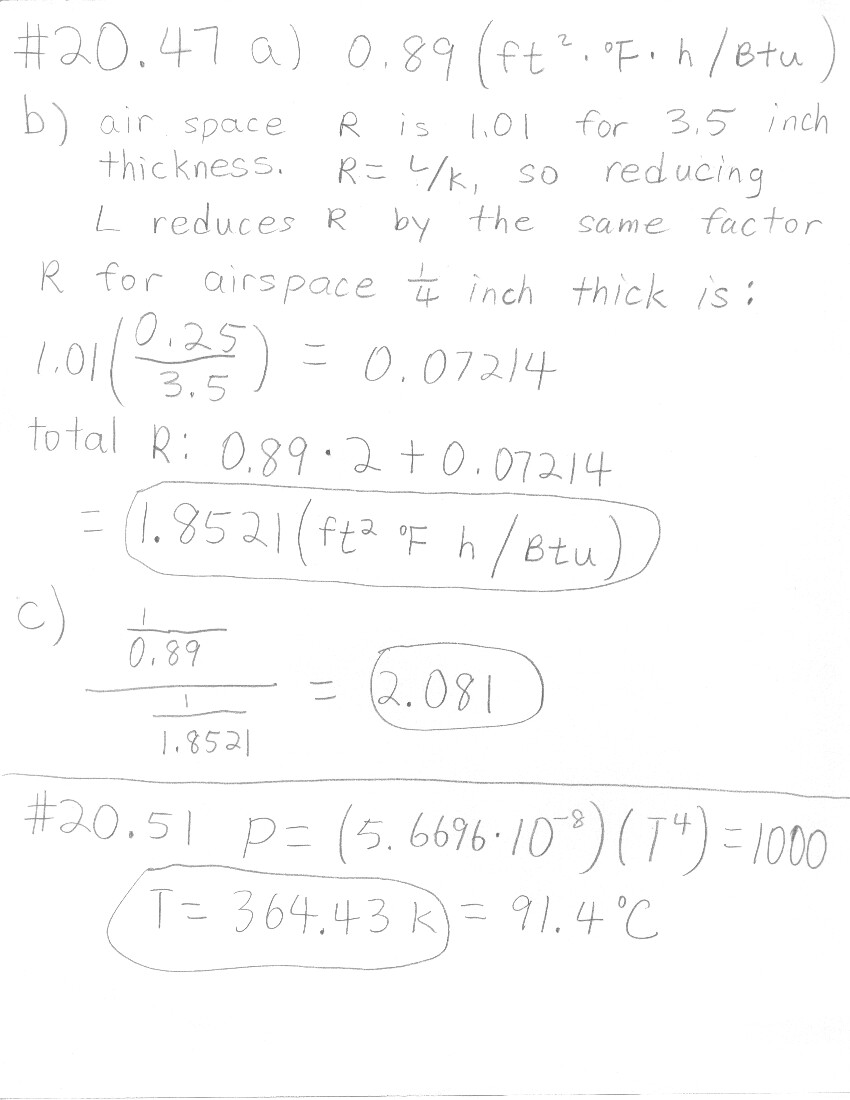 #20.47 a) 0.89 (ft²·°F·h/Btu)
b) air space R is 1.01 for 3.5 inch
thickness. R= L/k, so reducing
L reduces R by the same factor
R for airspace 1/4 inch thick is:
1.01(0.25/3.5) = 0.07214
total R: 0.89·2+0.07214
= 1.8521(ft² °F h/Btu)
c) (1/0.89)/(1/1.8521) = 2.081
#20.51 P=(5.6696·10⁻⁸)(T⁴)=1000
T= 364.43 k = 91.4°C